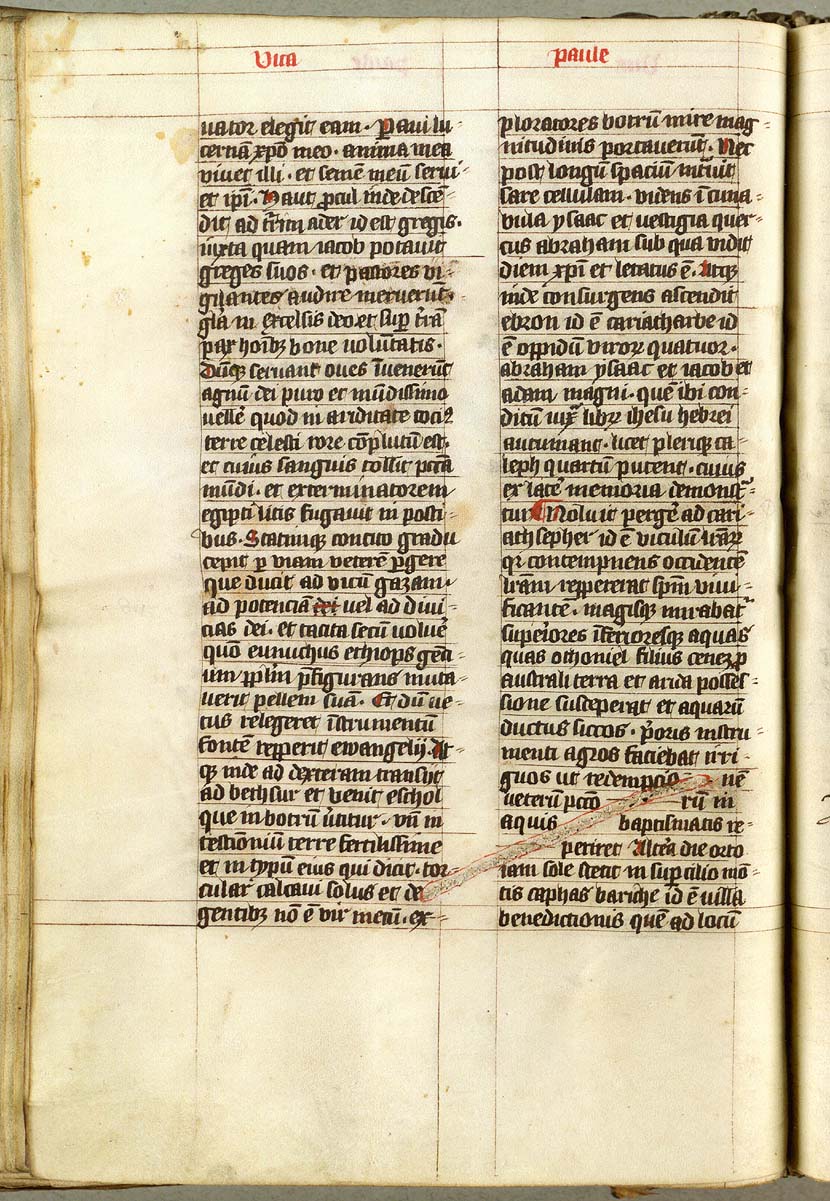 Vita paule
uator elegit eam. Paui lu-
cernā xpō meo. anima mea
viuet illi. et semē meū serui-
et ip̄i. Haut procul inde descē-
dit ad trīm ader id est gregis.
iuxta quam iacob potauit
greges suos. et pastores vi-
gilantes audire meruerūt.
glīa in excelsis deo et sup trā
pax hoībꝫ bone voluntatis.
Dūqꝫ seruant oues īuenerūt
agnū dei puro et mūdissimo
vellē quod in ariditate tociꝰ
terre celesti rore cōplutū est.
et cuius sanguis tollit pctā
mūdi. et exterminatorem
egipti litis fugauit in posti-
bus. Statimqꝫ concito gradu
cepit p viam veterē pgere
que ducit ad vicū gazam.
ad potenciā dei uel ad diui-
cias dei. et tacita secū voluē
quō eunuchus ethiops gent-
ium ppl̄m pfigurans muta-
uerit pellem suā. Et dū ve-
tus relegeret īstrumentū
fontē repperit ewangelij. At-
qꝫ inde ad dexteram transijt
ad bethsur et venit eschol
que in botrū v̄titur. vn̄ in
testimoniū terre fertilissime
et in typū eius qui dicit. tor-
cular calcaui solus et de
gentibꝫ nō ē vir mecū. ex-
ploratores botrū mire mag-
nitudinis portauerūt. Nec
post longū spaciū intrauit
sare cellulam. videns īcuna-
bula ysaac et vestigia quer-
cus abraham sub qua vidit
diem xpī et letatus ē. Atqꝫ
inde consurgens ascendit
ebron id ē cariatharbe id
ē oppidū viroꝝ quatuor.
abraham ysaac et iacob et
adam magni. quē ibi con-
ditū iux̄ librꝝ ihesu hebrei
autumant. licet pleriqꝫ ca-
leph quartū putent. cuius
ex latē memoria demonst̄-
tur Noluit pergē ad cari-
athsepher id ē viculū lrārꝝ
qꝛ contempnens occidentē
lrām reppererat spm̄ viui-
ficantē. magisqꝫ mirabat̄
superiores īferioresqꝫ aquas
quas othoniel filius cenez p
australi terra et arida posses-
sione susceperat et aquarū
ductus siccos. prioris instru-
menti agros faciebat irri-
guos ut redempcio nē
veterū pctō rū in
aquis baptismatis re-
periret Altera die orto
iam sole stetit in supcilio mō-
tis caphas bariche id ē villa
benedictionis quē ad locū